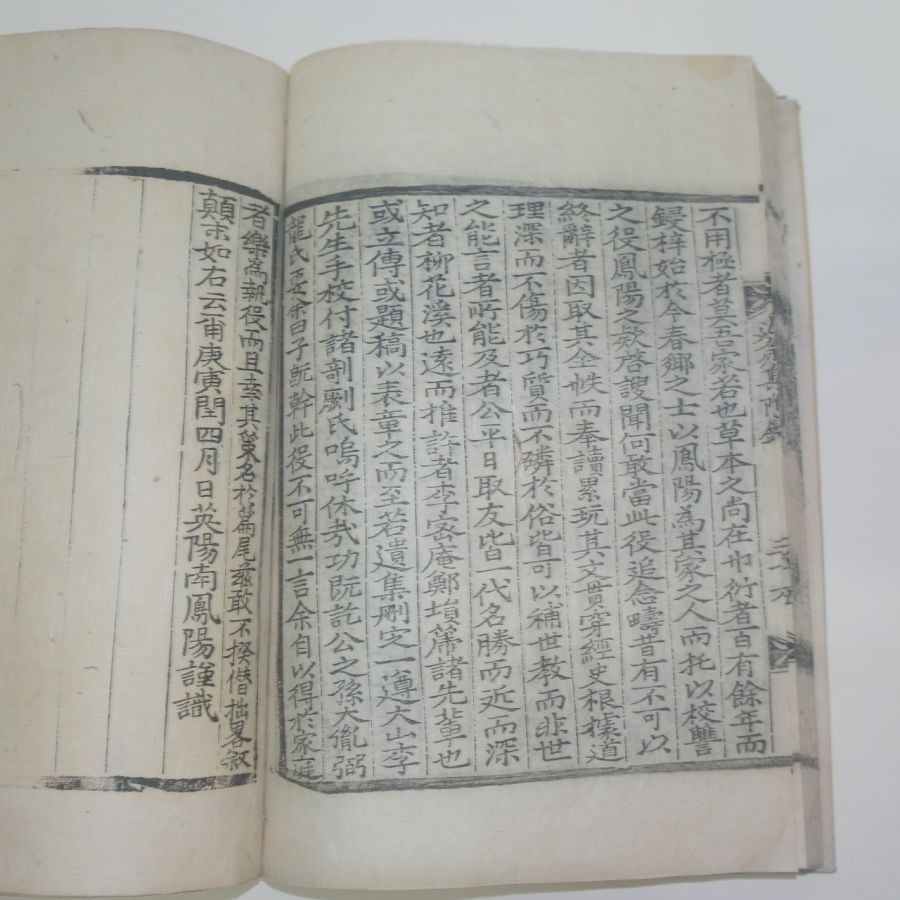 不用極者莫吾家若也草本之尚在巾衍者百有餘年而
鋟梓始於今春鄉之士以鳳陽為其家之人而托以校讐
之役鳳陽之欵啓謏聞何敢當此役追念疇昔有不可以
終辭者因取其全帙而奉讀累玩其文貫穿經史根據道
理深而不傷於巧質而不隣於俗皆可以補世教而非世
之能言者所能及者公平日取友皆一代名勝而近而深
知者柳花溪也遠而推許者李密庵鄭塤篪諸先輩也
或立傳或題稿以表章之而至若遺集刪定一遵大山李
先生手校付諸剞劂氏嗚呼休哉功既訖公之孫大胤弼
龍氏要余曰子既幹此役不可無一言余自以得於家庭
者樂為執役而且幸其策名於篇尾玆敢不揆僭拙畧叙
顛末如右云甭庚寅閏四月日英陽南鳳陽謹識